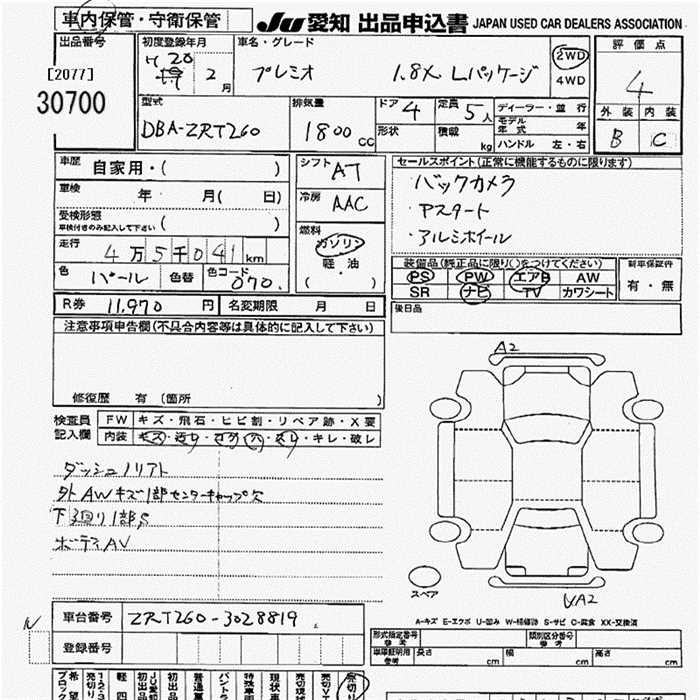 車内保管・守衛保管
JU 愛知 出品申込書 JAPAN USED CAR DEALERS ASSOCIATION
出品番号
[2077]
30700
初度登録年月
H20
2 月
車名・グレード
プレミオ 1.8X Lパッケージ
2WD
4WD
評価点
4
外装 内装
B C
型式
DBA-ZRT260
排気量
1800 cc
ドア 4
形状
定員 5 人
積載 kg
ディーラー・並行
モデル年式 年
ハンドル 左・右
車歴 自家用・( )
車検 年 月( 日)
受検形態
車検付きのみ記入して下さい ( )
走行 4万5千041km
色 パール 色替 色コード 070.
シフト AT
冷房 AAC
燃料
ガソリン
軽・油
( )
セールスポイント(正常に機能するものに限ります)
バックカメラ
・Pスタート
・アルミホイール
装備品(純正品に限り○をつけてください)
PS PW エアB AW
SR ナビ TV カワシート
新車保証件
有・無
R券 11,970 円 名変期限 月 日
後日品
注意事項申告欄(不具合内容等は具体的に記入して下さい)
修復歴 有 (箇所 )
検査員記入欄
FW キズ・飛石・ヒビ割・リペア跡・X要
内装 キズ・汚レ・コゲ・穴・スレ・キレ・破レ
ダッシュノリアト
外AWキズ1部センターキャップ欠
下廻り1部S
ボディAV
A2
スペア
VA2
A-キズ E-エクボ U-凹み W-補修跡 S-サビ C-腐食 XX-交換済
車台番号 ZRT260-3028819
登録番号
形式指定番号
参考
類別区分番号
参考
車庫証明用
参考
長さ cm 幅 cm 高さ cm
希望
ブロック
売切り
軽四
初出品
普通車
バントラ
特殊車
現状車
売切現状